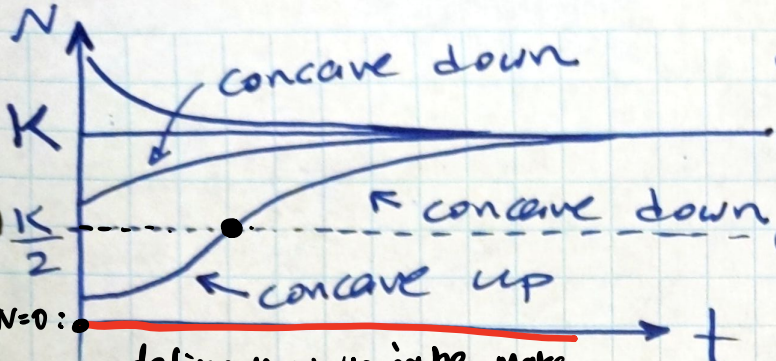 N
concave down
K
K/2
concave down
concave up
N=0:
t